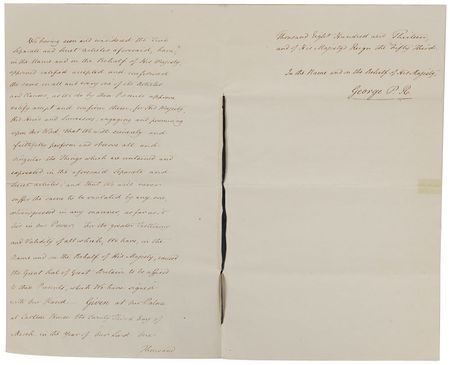 We having seen and considered the
Separate and Secret Articles aforesaid, have,
in the Name and on the Behalf of His Majesty
approved ratified accepted and confirmed
the same in all and every one of its Articles
and Clauses, as We do by these Presents approve
ratify accept and confirm them, for His Majesty,
His Heirs and Successors, engaging and promising
upon Our Word that We will sincerely and
faithfully perform and observe all and
singular the Things which are contained and
expressed in the aforesaid Separate and
Secret Articles, and that We will never
suffer the same to be violated by any one
or transgressed in any manner, as far as it
lies in our Power. For the greater Testimony
and Validity of all which, We have, in the
Name and on the Behalf of His Majesty, caused
the Great Seal of Great Britain to be affixed
to these Presents, which We have signed
with our Hand. Given at our Palace
at Carlton House the Day of
March in the Year of Our Lord One
Thousand
Thousand Eight Hundred and Thirteen,
and of His Majesty's Reign the Fifty Third.
In the Name and on the Behalf of His Majesty,
George P. R.